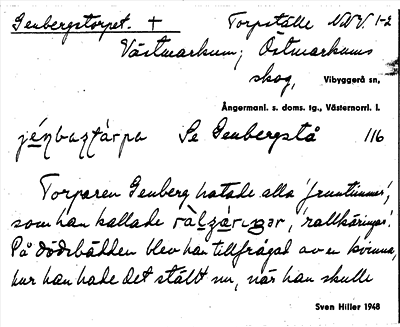 Genbergstorpet. + Torpställe NNV. 1-2
Västmarkum; Östmarkums
skog, Vibyggerå sn,
Ångermanl. s. doms. tg., Västernorrl. l.
Se Genbergstå 116
Torparen Genberg hatade alla 'fruntimmer',
som han kallade 'rallkäringar'.
På dödsbädden blev han tillfrågad av en kvinna,
hur han hade det ställt nu, när han skulle
Sven Hiller 1948